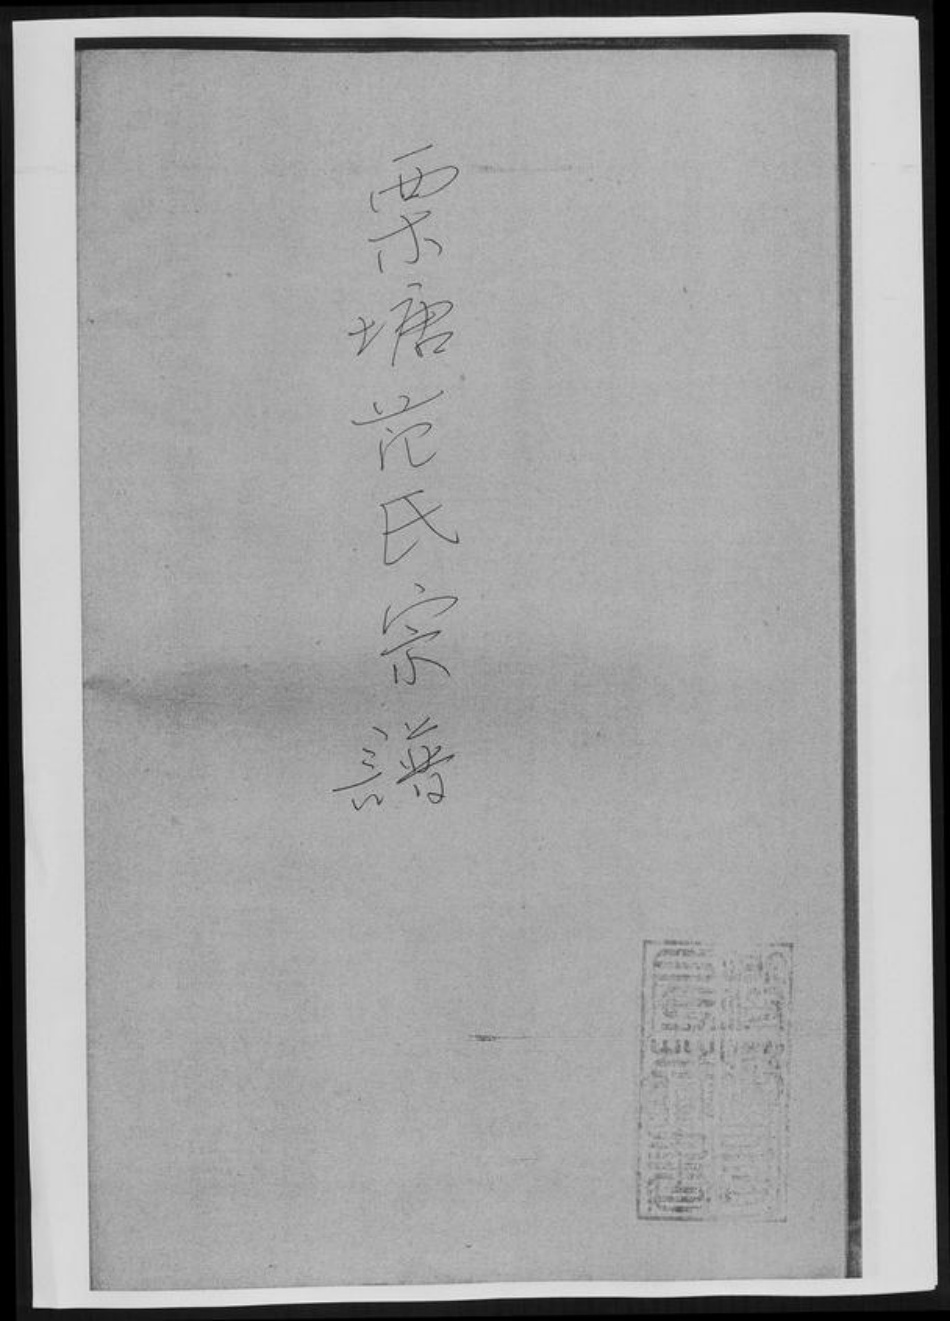 栗塘范氏宗譜